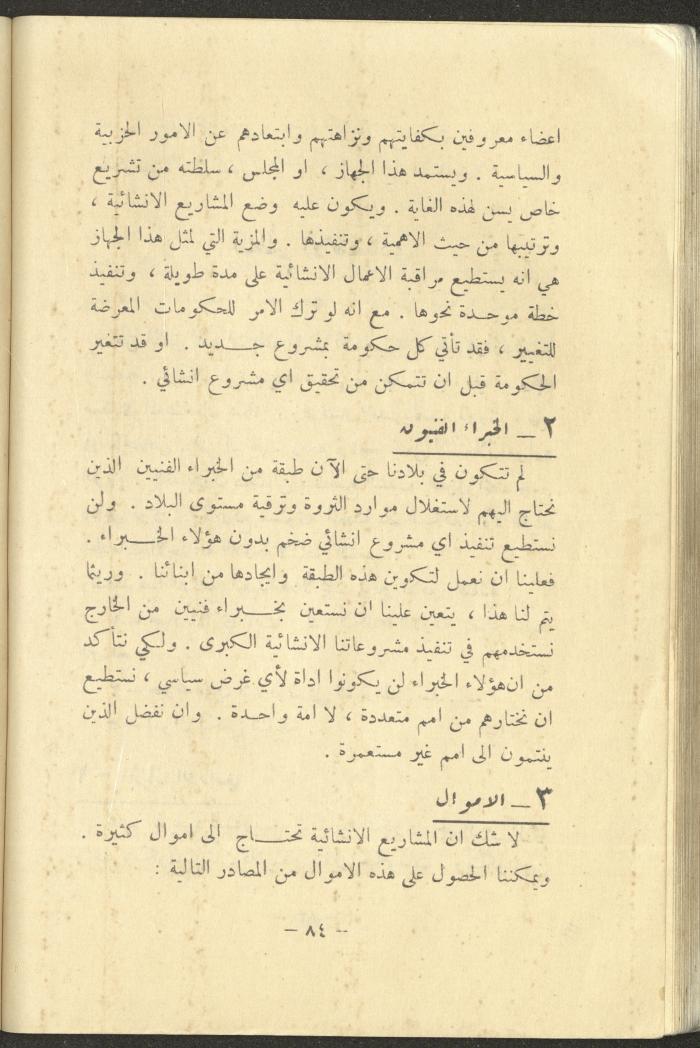 اعضاء معروفين بكفايتهم ونزاهتهم وابتعادهم عن الامور الحزبية
والسياسية . ويستمد هذا الجهاز ، او المجلس ، سلطته من تشريع
خاص يسن لهذه الغاية . ويكون عليه وضع المشاريع الانشائية ،
وترتيبها من حيث الاهمية ، وتنفيذها . والمزية التي لمثل هذا الجهاز
هي انه يستطيع مراقبة الاعمال الانشائية على مدة طويلة ، وتنفيذ
خطة موحدة نحوها . مع انه لو ترك الامر للحكومات المعرضة
للتغيير ، فقد تأتي كل حكومة بمشروع جديد . او قد تتغير
الحكومة قبل ان تتمكن من تحقيق اي مشروع انشائي .
٢ – الخبراء الفنيون
لم تتكون في بلادنا حتى الآن طبقة من الخبراء الفنيين الذين
نحتاج اليهم لاستغلال موارد الثروة وترقية مستوى البلاد . ولن
نستطيع تنفيذ اي مشروع انشائي ضخم بدون هؤلاء الخبراء .
فعلينا ان نعمل لتكوين هذه الطبقة وايجادها من ابنائنا . وريثما
يتم لنا هذا ، يتعين علينا ان نستعين بخبراء فنيين من الخارج
نستخدمهم في تنفيذ مشروعاتنا الانشائية الكبرى . ولكي نتأكد
من ان هؤلاء الخبراء لن يكونوا اداة لأي غرض سياسي ، نستطيع
ان نختارهم من امم متعددة ، لا امة واحدة . وان نفضل الذين
ينتمون الى امم غير مستعمرة .
٣ – الاموال
لا شك ان المشاريع الانشائية تحتاج الى اموال كثيرة .
ويمكننا الحصول على هذه الاموال من المصادر التالية :
– ٨٤ –